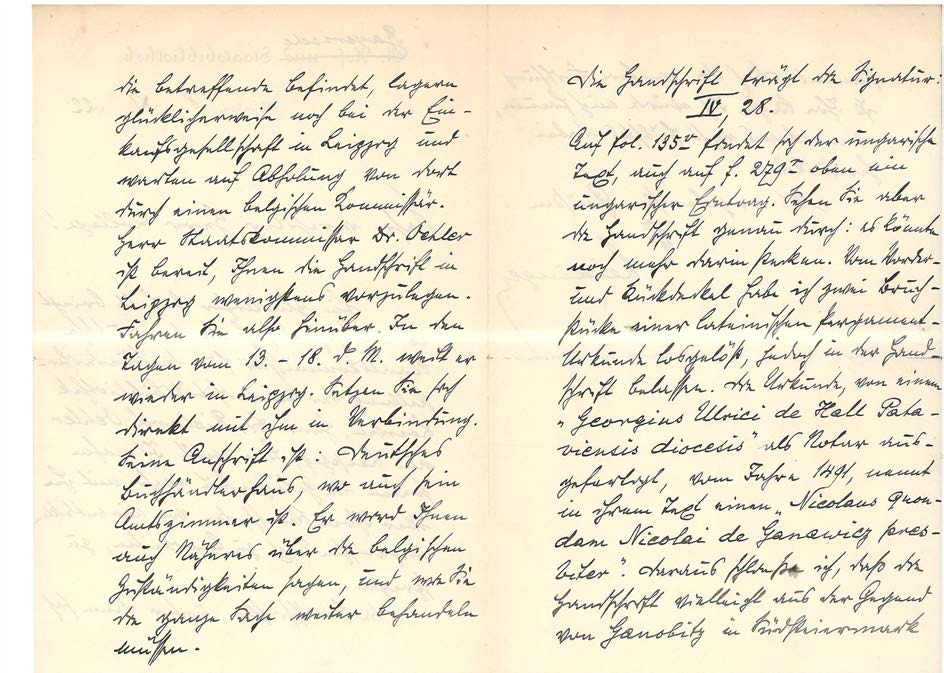 die betreffende befindet, lagern
glücklicherweise noch bei der Ein-
kaufsgesellschaft in Leipzig und
warten auf Abholung von dort
durch einen belgischen Kommissär.
Herr Staatskommissar Dr. Oehler
ist bereit, Ihnen die Handschrift in
Leipzig wenigstens vorzulegen.
Fahren Sie also hinüber. In den
Tagen vom 13. – 18. d. M. weilt er
wieder in Leipzig. Setzen Sie sich
direkt mit ihm in Verbindung.
Seine Anschrift ist: Deutsches
Buchhändlerhaus, wo auch sein
Amtszimmer ist. Er wird Ihnen
auch Näheres über die belgischen
Zuständigkeiten sagen, und wie Sie
die ganze Sache weiter behandeln
müssen.
Die Handschrift trägt die Signatur:
IV, 28.
Auf fol. 135v findet sich der ungarische
Text, auch auf f. 279r oben ein
ungarischer Eintrag. Sehen Sie aber
die Handschrift genau durch: es könnte
noch mehr darin stecken. Vom Vorder-
und Rückdeckel habe ich zwei Bruch-
stücke einer lateinischen Pergament-
Urkunde losgelöst, jedoch in der Hand-
schrift belassen. Die Urkunde, von einem
„Georgius Ulrici de Hall Pata-
viensis diocesis" als Notar aus-
gefertigt, vom Jahre 1491, nennt
in ihrem Text einen „Nicolaus quon-
dam Nicolai de Ganawicz pres-
biter". Daraus schließe ich, daß die
Handschrift vielleicht aus der Gegend
von Ganobitz in Südsteiermark